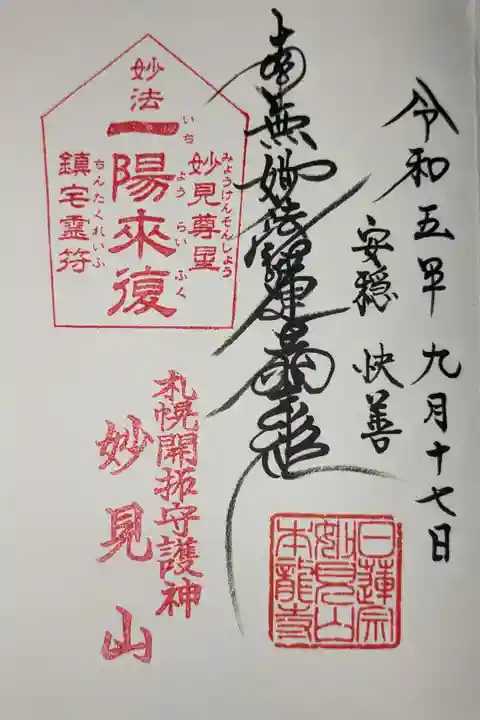 令和五年 九月十七日
安穏 快善
南無妙法蓮華経
妙法
いち
一陽来復
よう らい ふく
妙見尊星
みょうけんそんしょう
鎮宅霊符
ちんたくれいふ
札幌開拓守護神
妙見山
日蓮宗
妙見山
本龍寺